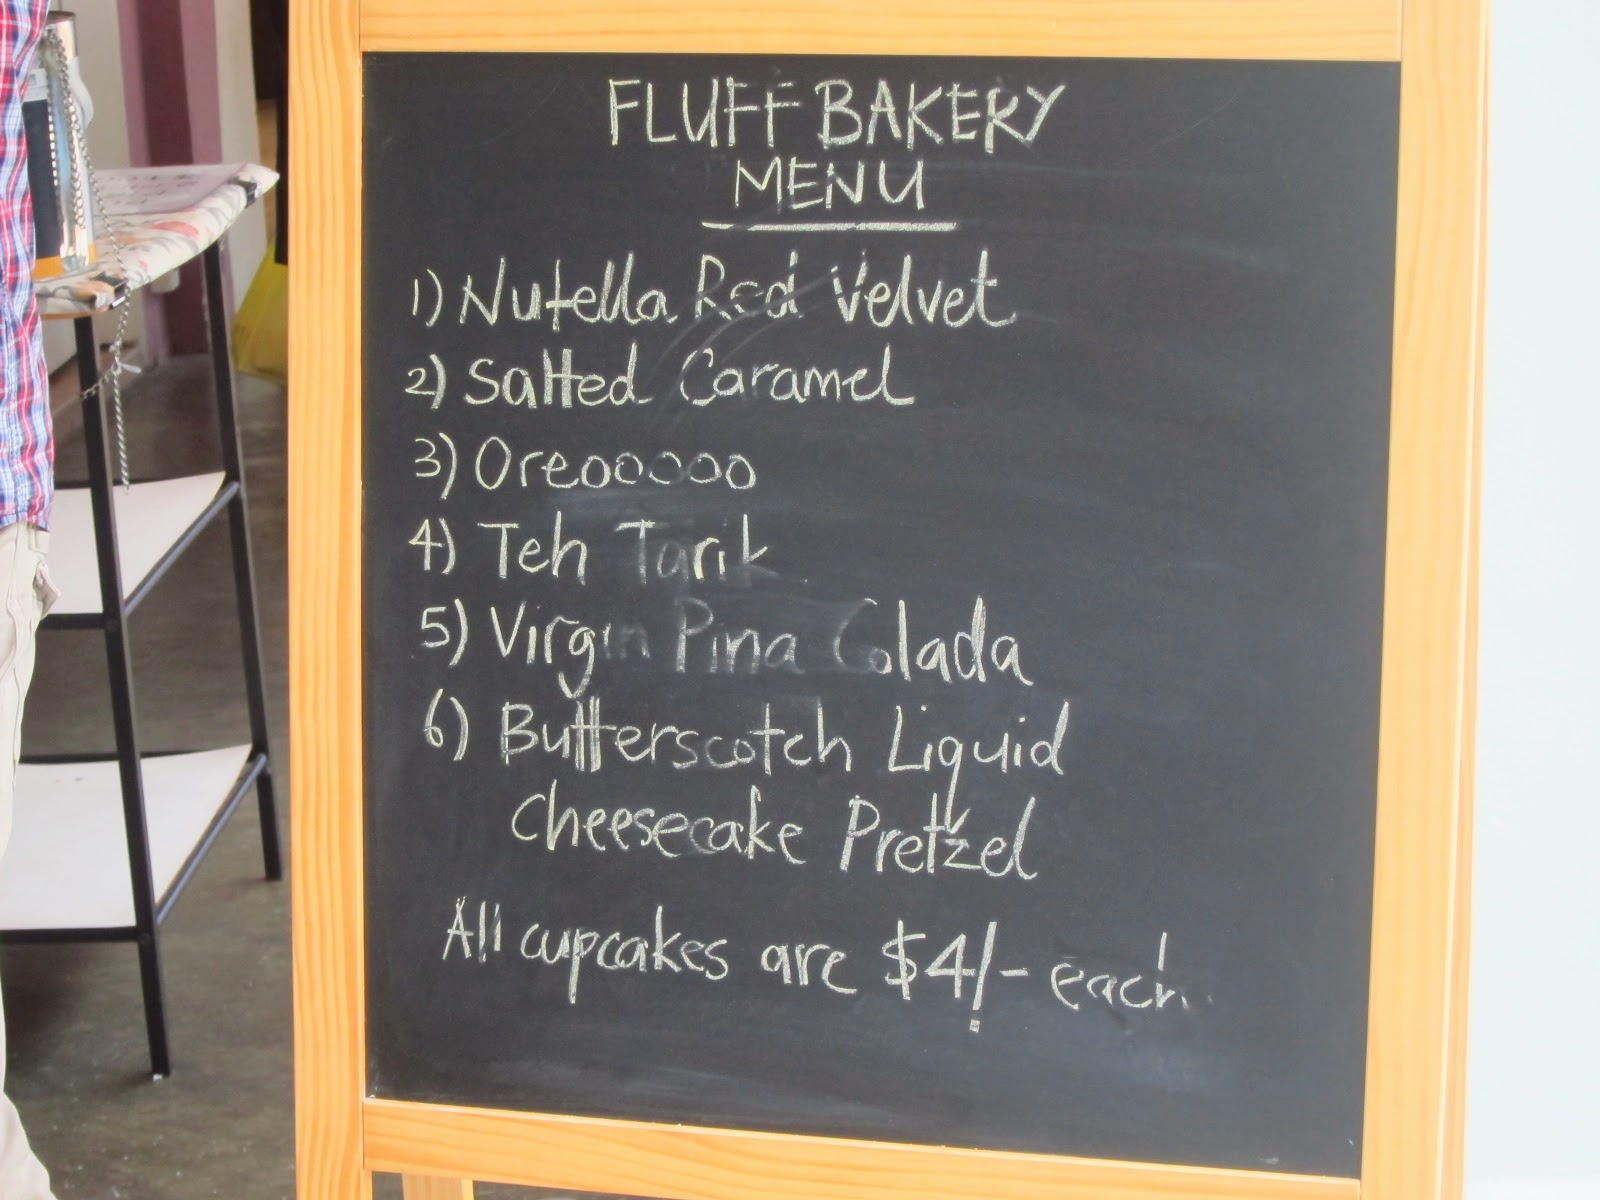 FLUFF BAKERY
MENU
1) Nutella Red Velvet
2) Salted Caramel
3) Oreooooo
4) Teh Tarik
5) Virgin Pina Colada
6) Butterscotch Liquid
Cheesecake Pretzel
All cupcakes are $4/- each.